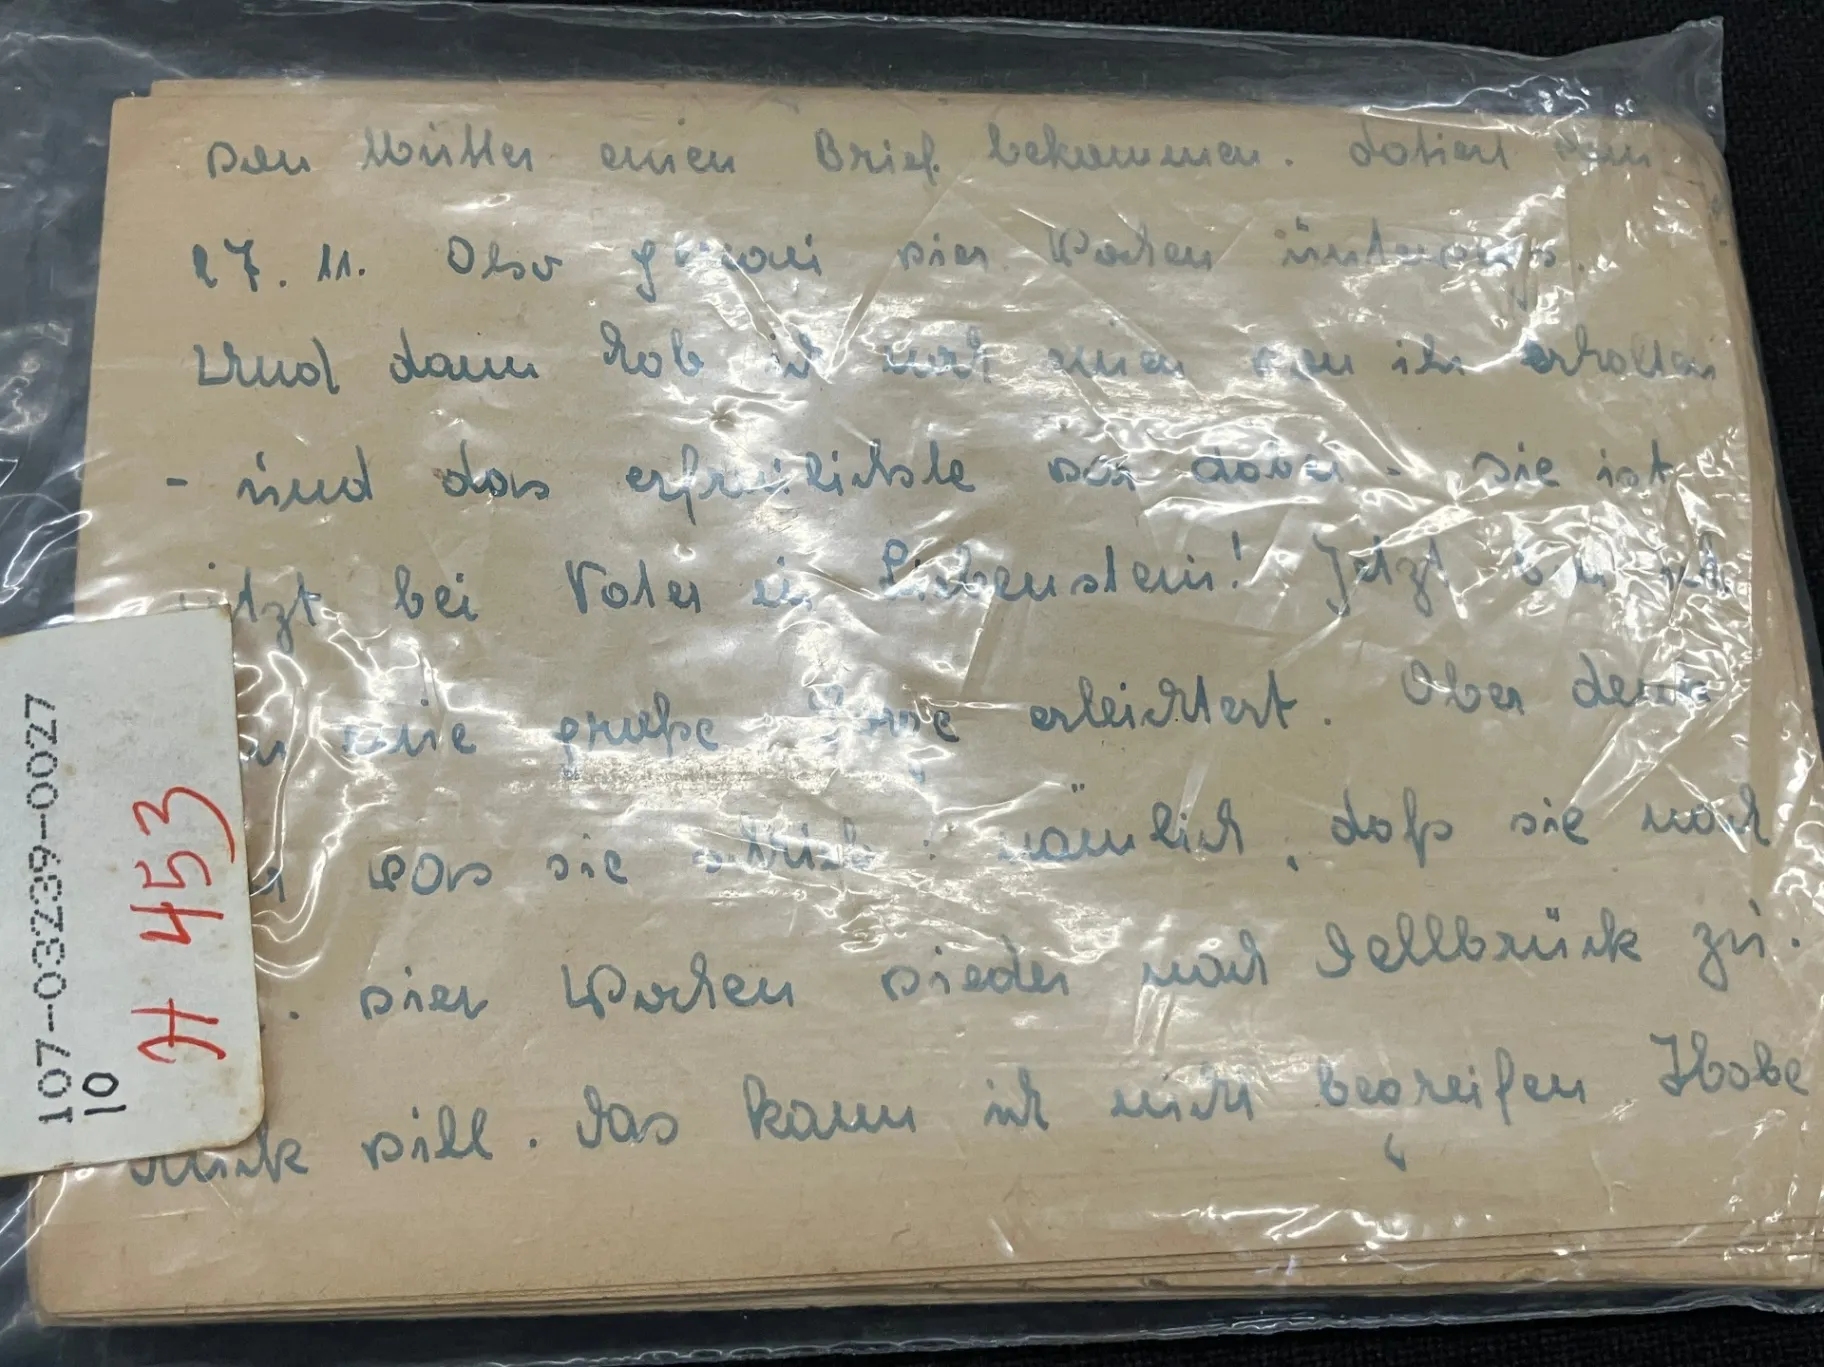 von Mutter einen Brief bekommen. datiert vom
27. 11. Also genau vier Wochen unterwegs.
Und dann hab ich noch einen von ihr erhalten
- und das erfreulichste war dabei - sie ist
jetzt bei Vater in Liebenstein! Jetzt bin ich
um eine große Sorge erleichtert. Aber denk
was sie schrieb: nämlich, daß sie nach
vier Wochen wieder nach Dellbrück zu-
rück will. Das kann ich nicht begreifen Habe
107-03239-0027
10
H 453